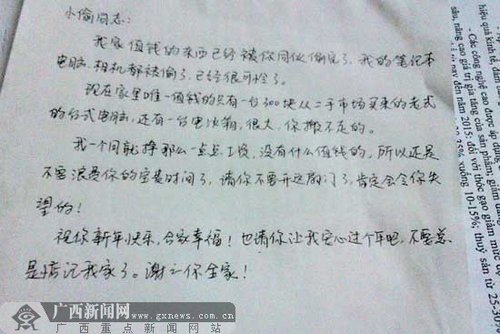 小偷同志:
我家值钱的东西已经被你同伙偷完了,我的笔记本
电脑,相机都被偷了,已经很可怜了。
现在家里唯一值钱的只有一台300块从二手市场买来的老式
的台式电脑,还有一台电冰箱,很大,你搬不走的。
我一个月就挣那么一点点工资,没有什么值钱的,所以还是
不要浪费你的宝贵时间了,请你不要开这扇门了,肯定会令你失
望的!
祝你新年快乐,合家幸福!也请你让我安心过个年吧,不要总
是惦记我家了。谢谢你全家!
广西新闻网
www.gxnews.com.cn
广西重点新闻网站
hiệu quả kinh tế, đảm
- Các công nghệ cao được áp d
sâu, nâng cao giá trị gia tăng của sản phẩm; giảm
từ nay đến năm 2015: đối với thóc gạo giảm mức
xuống 10-15%; thuỷ sản từ 25-20